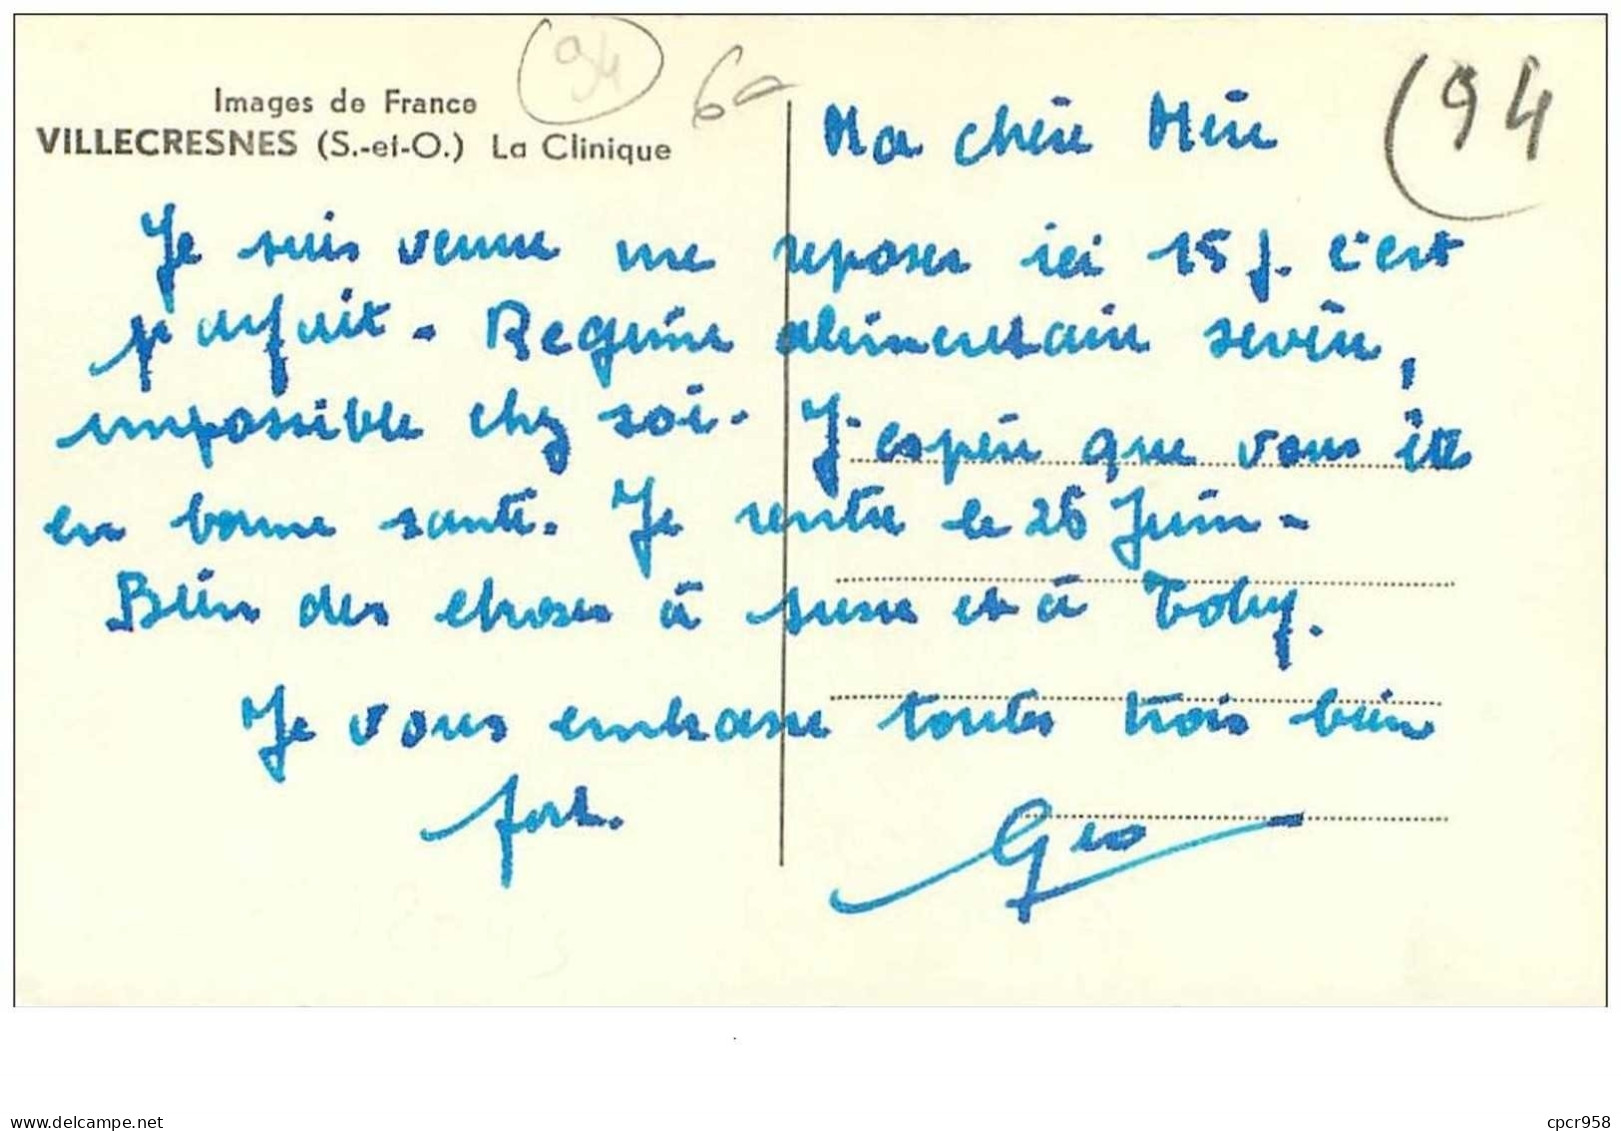 Images de France
VILLECRESNES (S.-et-O.) La Clinique
94
94
Ma chère Mère
Je suis venue me reposer ici 15 j. c'est
parfait - Régime alimentaire sévère,
impossible chez soi - J'espère que vous êtes
en bonne santé. Je rentre le 26 Juin -
Bien des choses à et à Toby.
Je vous embrasse toutes trois bien
fort.
Geo
www.delcampe.net
cpcr958